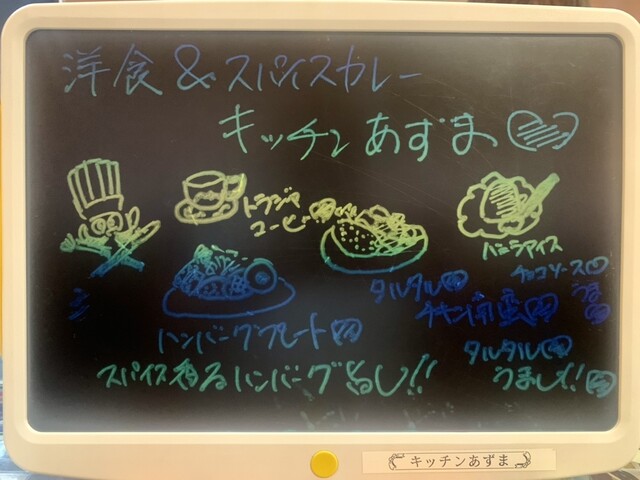 洋食&スパイスカレー
キッチンあずま
トラジャ
コーヒー
バニラアイス
チョコソース
タルタル
チキン南蛮
ハンバーグプレート
タルタル
スパイス香るハンバーグ
うまし!
キッチンあずま